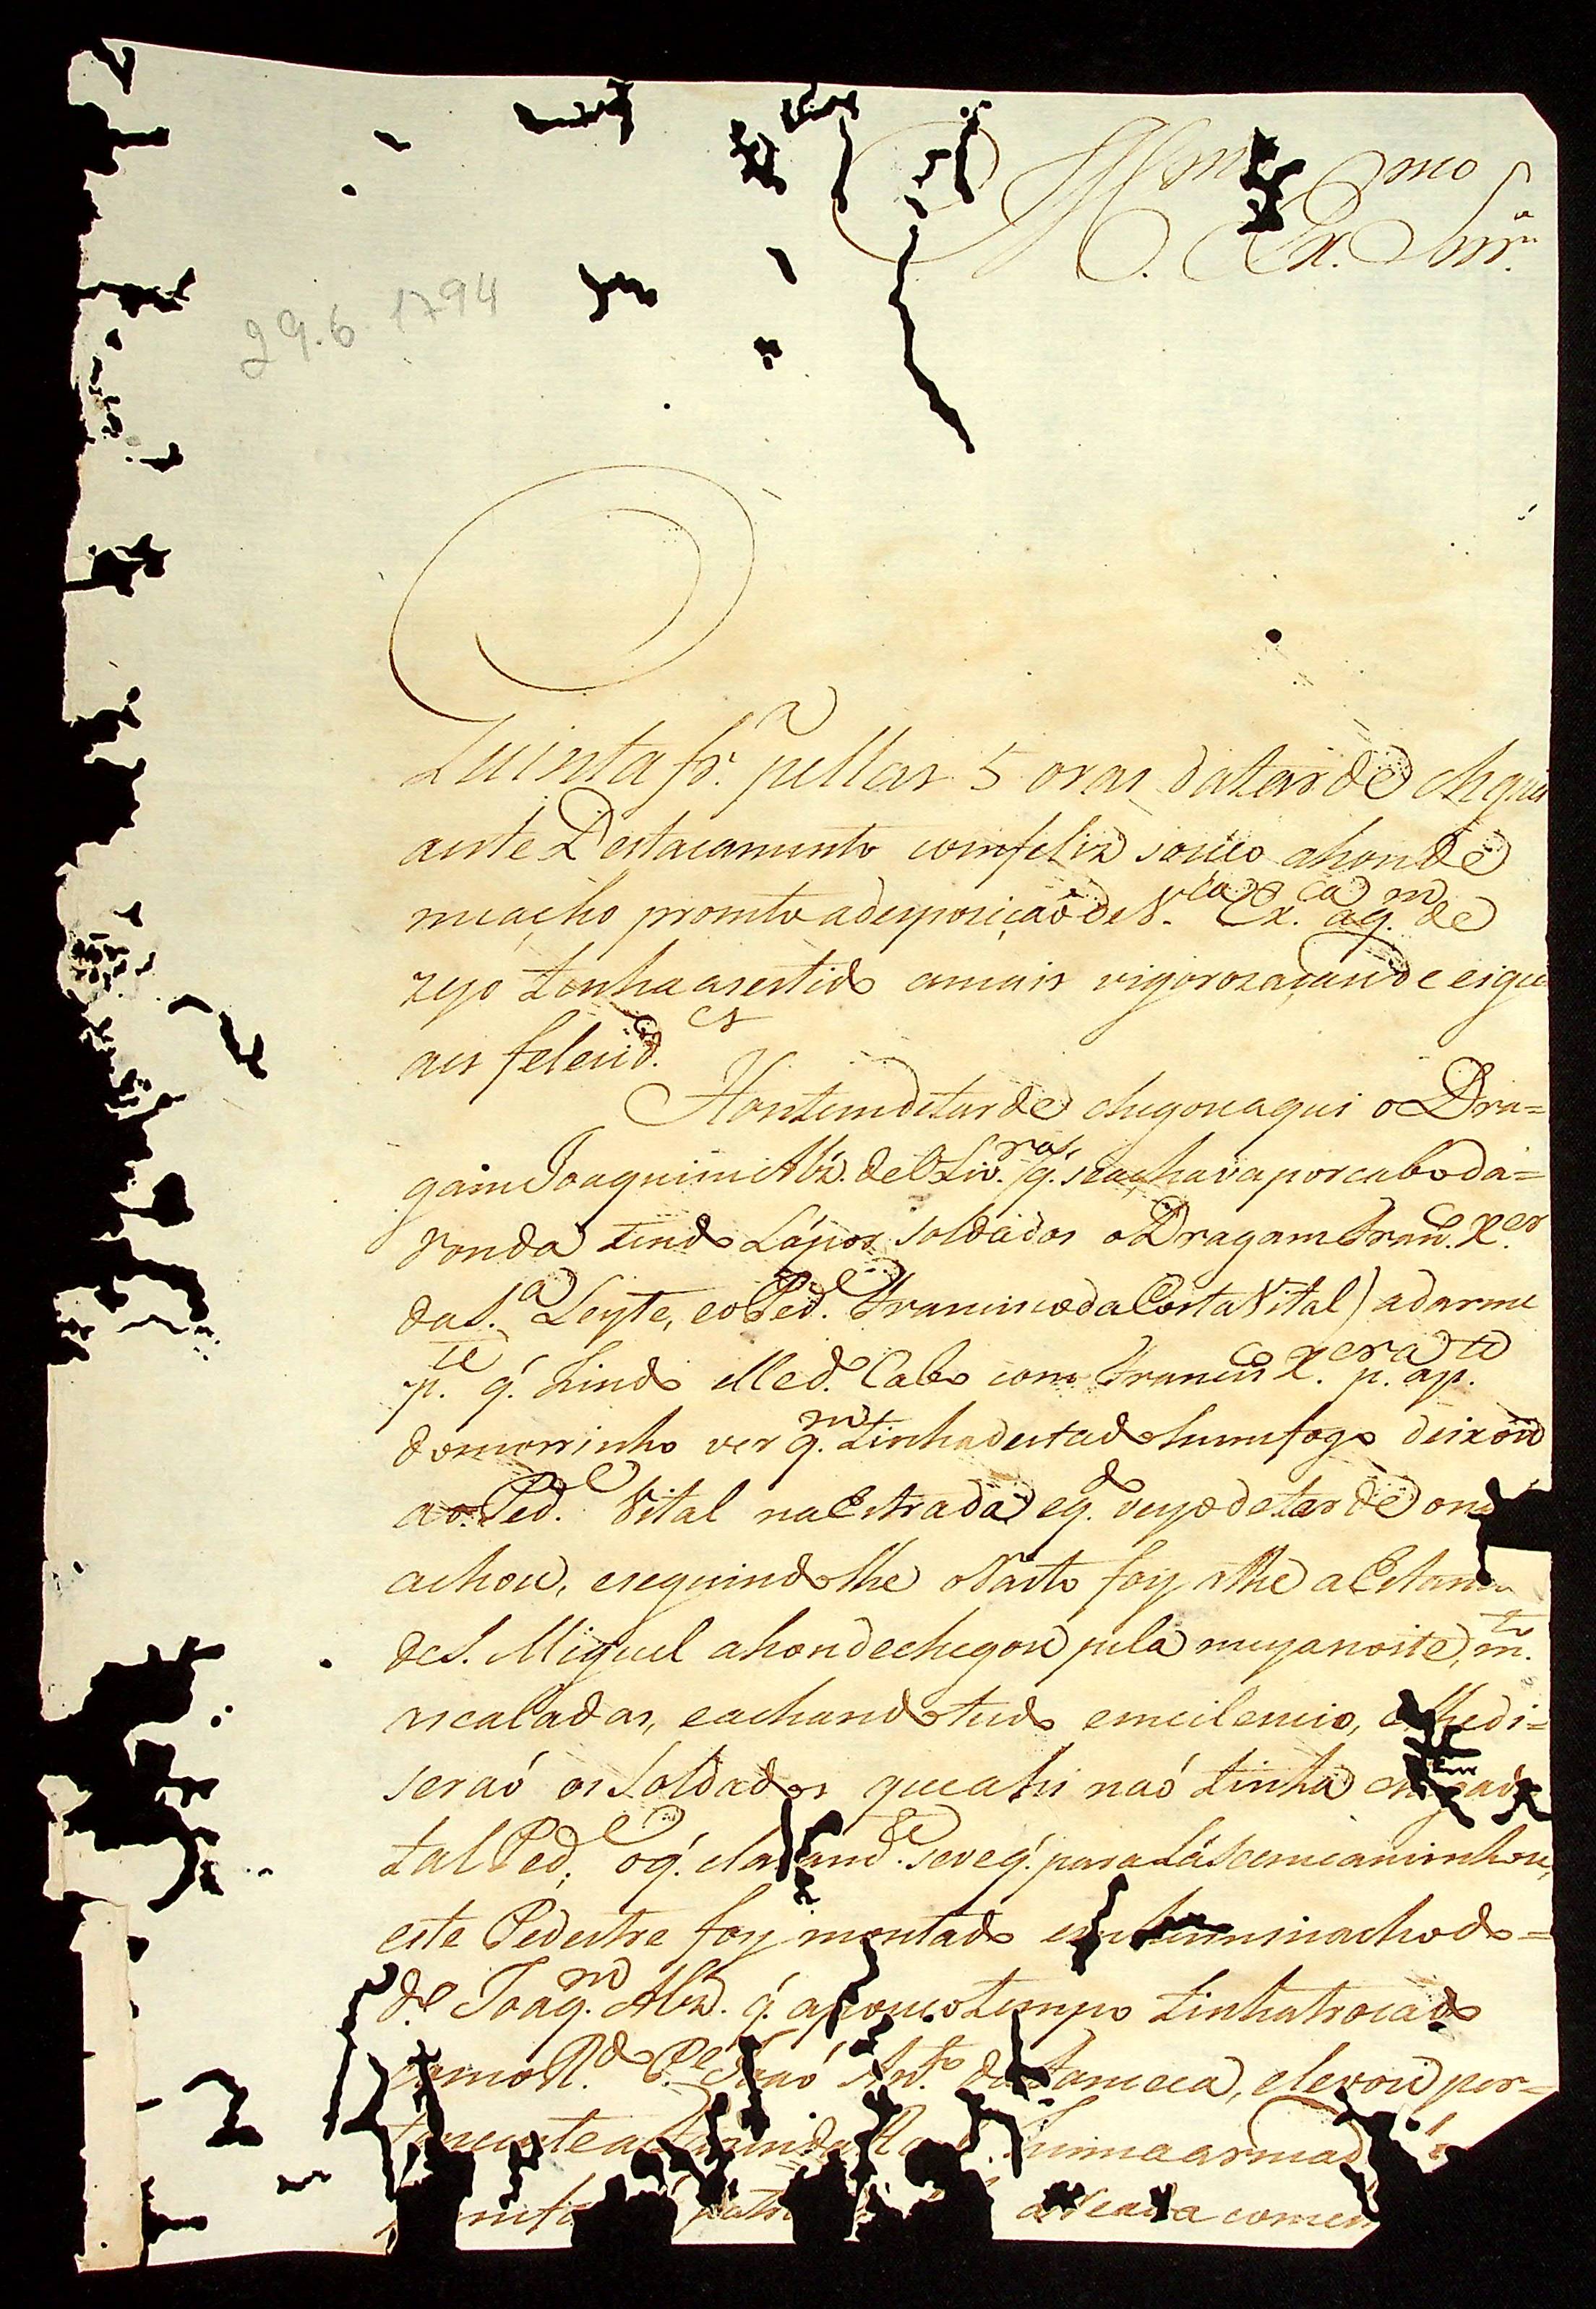 Illmo Exmo Snr.
29.6.1794
Quinta fr.ª pellas 5 oras datarde cheguei
aeste Destacamento comfeliz soceço ahonde
meacho promto adespoziçaõ de V.ª Ex.ca aq.m de
zejo tenha asestido amais vigoroza çaude eigu
aes felecid.es
Hontem detarde chegou aqui o Dra=
gam Joaquim Alz. de Oliv.ra q́. seachava porcabo da=
Ronda tendo Lá por soldados o Dragam Fran.co X.er
da S.a Leyte, eo Ped.e Francisco da Costa Vital) adarme
p.te q́. hindo elle d.o Cabo com Francis.co X.er p.a ap.te
domorrinho ver q.m tinha deitado hum fogo deixou
ao Ped.e Vital na Estrada) eq.do veyo detarde onaõ
achou, eseguindolhe o Rasto foy athe a Estancia
de S. Miguel ahonde chegou pela meyanoite, m.to
escaladas, eachando tudo emcilencio, e lhe di=
seraõ os Soldados que ahi naõ tinha chegado
tal Ped.e, oq́. claram.te seve q́. para Lá seemcaminhou,
este Pedestre foy montado em hum machodo=
d.o Joaq.m Alz. q́. apouco tempo tinhatrocado
como R.do P.e Joaõ An.to da Fonceca, elevou per=
huma armad
comen